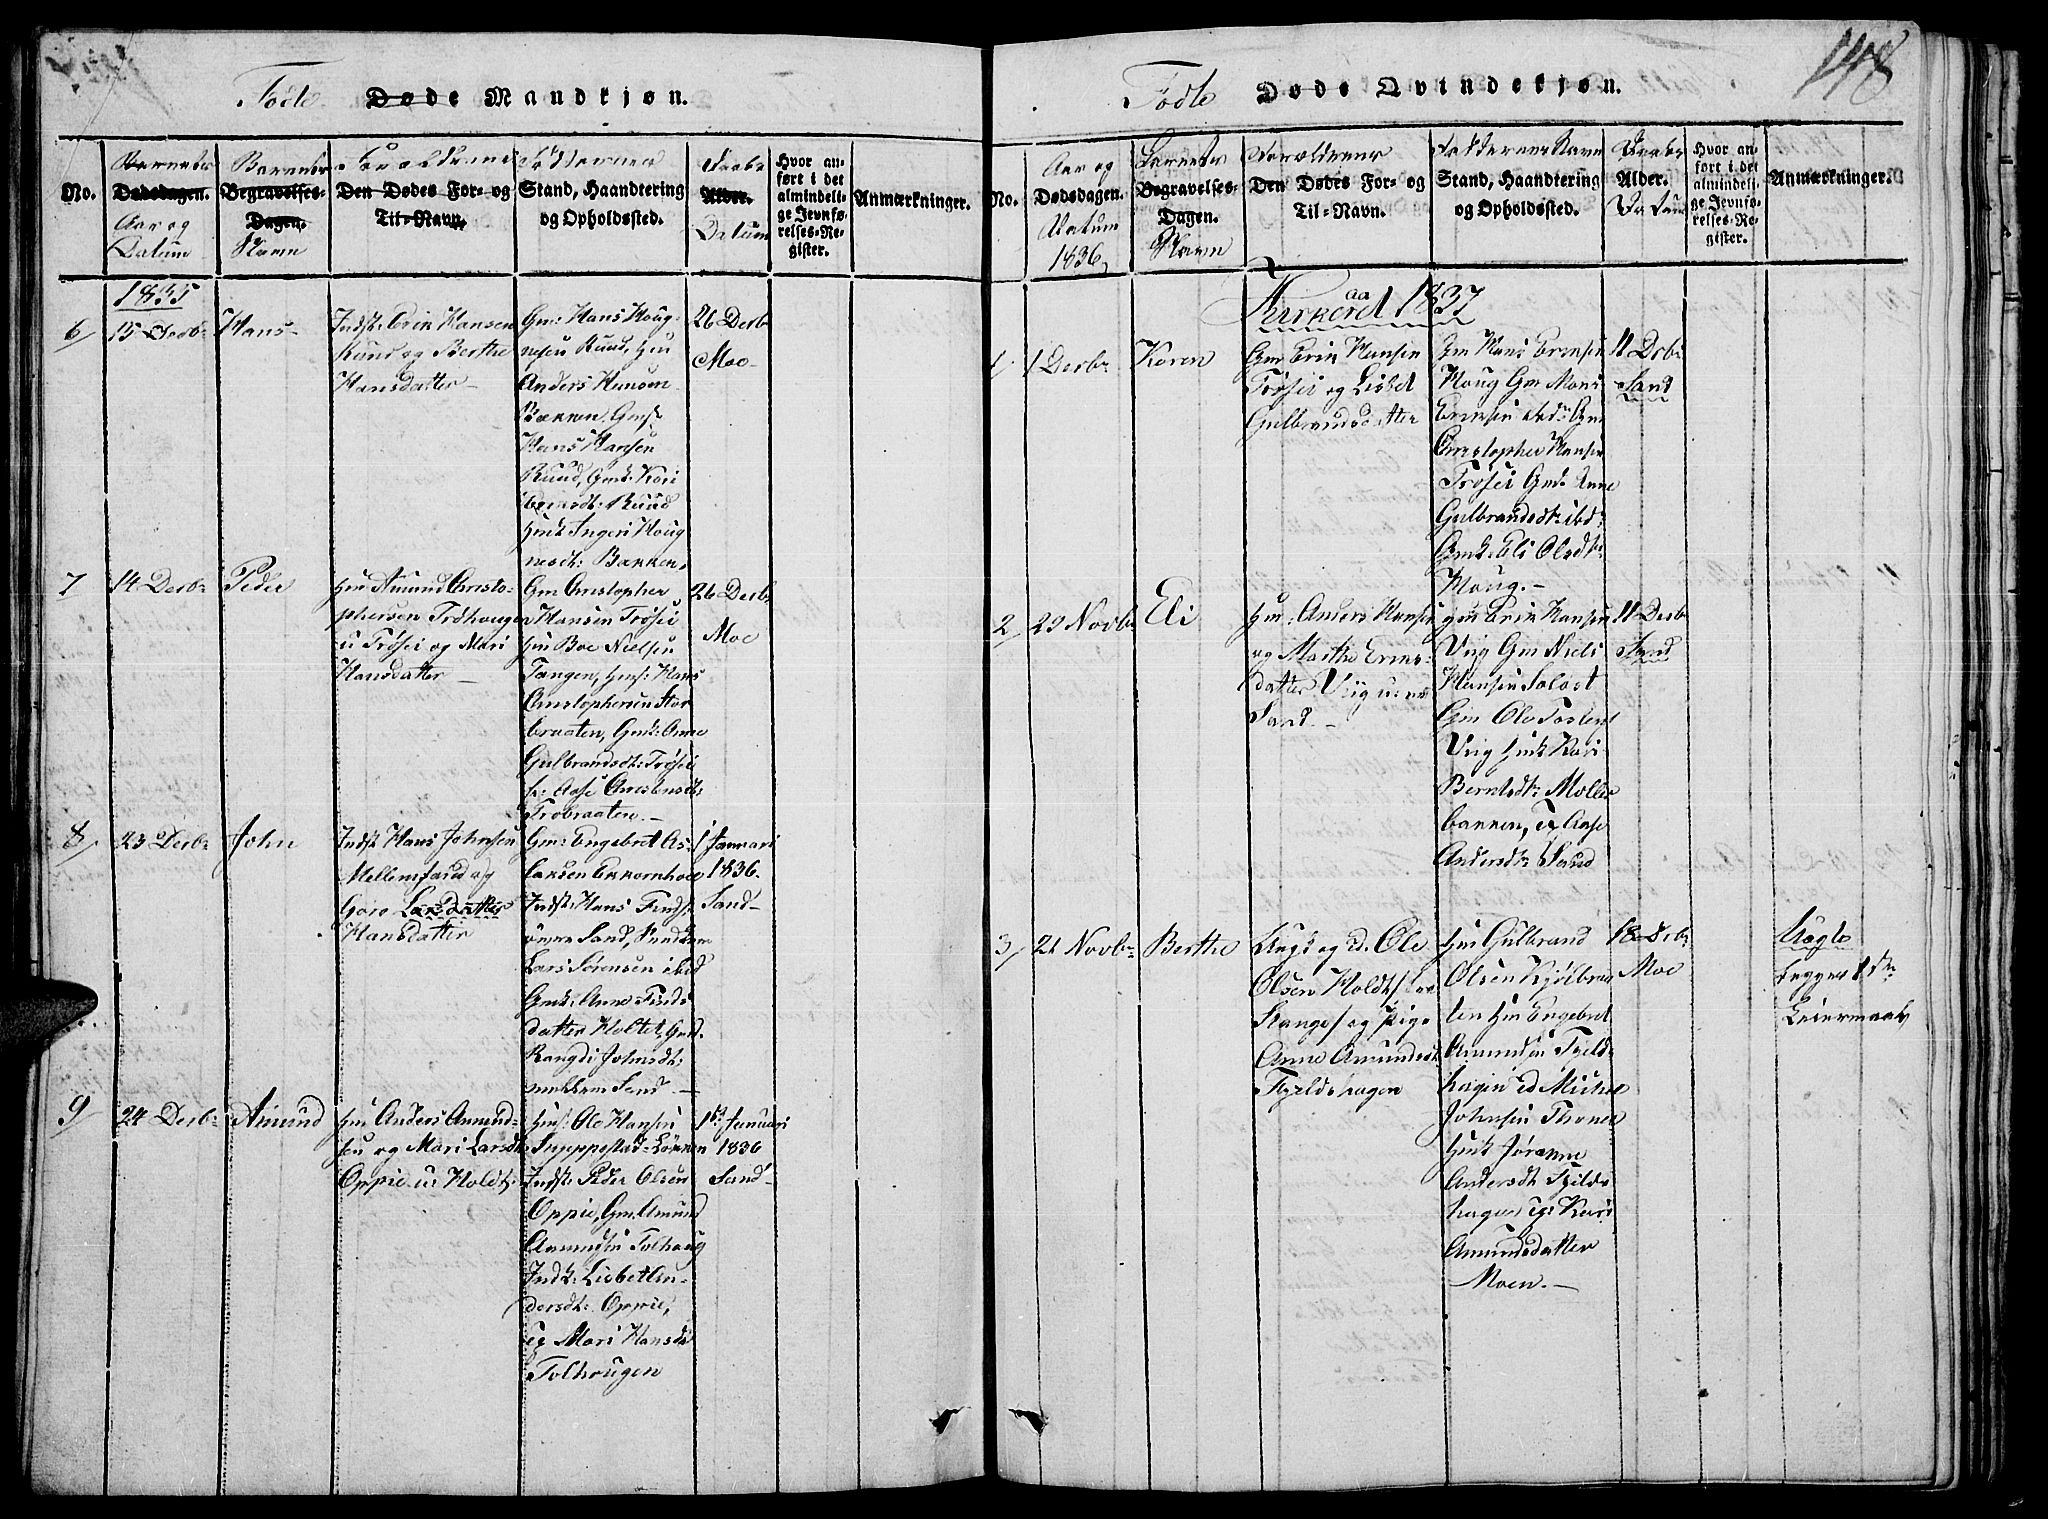 148
Fødte Døde Mandkjøn.
No.
Barnets
Dødsdagen.
Aar og
Datum
Barnets
Begravelses-
Dagen.
Navn
Forældrenes
Den Dødes For- og
Til-Navn.
Faddernes
Stand, Haandtering
og Opholdssted.
Daabs
Alder.
Datum
Hvor an-
ført i det
almindeli-
ge Jevnfø-
relses-Re-
gister.
Anmærkninger.
1835
6
15 Octbr
Hans
Indst: Erik Hansen
Ruud og Berthe
Hansdatter
Gm: Hans Houg-
nesen Ruud, Hm
Anders Hansen
Bakken, Gms:
Hans Hansen
Ruud, Gmk: Kari
Eriksdt: Ruud
Hmk Ingeri Houg
nesdt: Bakken,
26 Decbr
Moe
7
14 Decbr
Peder
Hm Amund Christo-
phersen Trøhaugen
u Trøsei og Mari
Hansdatter
Gm Christopher
Hansen Trøsei
Hm Boe Nielsen
Tangen, Hms: Hans
Christophersen Stor
braaten, Gmk: Anne
Gulbrandsdt: Trøsei
p: Aase Christensdt:
Trobraaten.
26 Decbr
Moe
8
23 Decbr
John
Indst Hans Johnsen
Mellemsand og
Goro Larsdatter
Hansdatter
Gm: Engebret As-
laksen Ekornhoel
Indst: Hans Finds:
øvre Sand, Ungkm
Lars Sørensen ibid
Gmk: Anne Finds
datter Holtet, Gmk.
Rangdi Johnsdt:
mellem Sand
1 Januari
1836.
Sand
9
24 Decbr
Amund
Hm Anders Amund-
sen og Mari Larsdt:
Oppie u: Holdt:
Hms: Ole Hansen
Sneppestad-Løkken
Indst: Peder Olsen
Oppie, Gm. Amund
Amundsen Tolhaug
Indk: Lisbet An-
dersdt: Oppie,
og Mari Hansdt
Tolhougen
1st Januari
1836
Sand
Fødte Døde Qvindekjøn.
No.
Aar og
Dødsdagen.
Datum
1836
Barnets
Begravelses-
Dagen.
Navn
Forældrenes
Den Dødes For- og
Til-Navn.
Faddernes Navn
Stand, Haandtering
og Opholdssted.
Daabs
Alder.
Datum
Hvor an-
ført i det
almindeli-
ge Jevnfø-
relses-Re-
gister.
Anmærkninger.
Kirkeaaret 1837
1
1 Decbr
Karen
Gm Erik Hansen
Trøsei og Lisbet
Gulbrandsdatter
Gm Hans Eriksen
Houg Gm Mons
Eriksen ibd: Gm
Christopher Hansen
Trøsei Gmk: Anne
Gulbrandsdt: ibd:
Gmk: Eli Olsdt:
Houg.
11 Decbr
Sand
2
29 Novbr
Eli
Hm: Anders Hansen
og Marthe Eriks-
datter Viig u: nø
Sand.
gm Erik Hansen
Viig Gm Niels
Hansen Soløst
Gm Ole Torstens
Viig Hmk Kari
Berntsdt: Møller
bakken, og Aase
Andersdt: Sand
11 Decbr
Sand
3
21 Novbr
Berthe
Ungk og d. Ole
Olsen Holdt
Stange og Pige
Anne Amundsdt
Kjeldshagen
Hm Gulbrand
Olsen Kjølbraa
ten Hm Engebret
Amundsen Kjelds
hagen og Michel
Johnsen Thoner
Hmk Jøranne
Andersdt Kjelds
hagen og Kari
Amundsdatter
Moen.
18 Decbr
Moe
Uægte
begges 1ste
Leiermaal